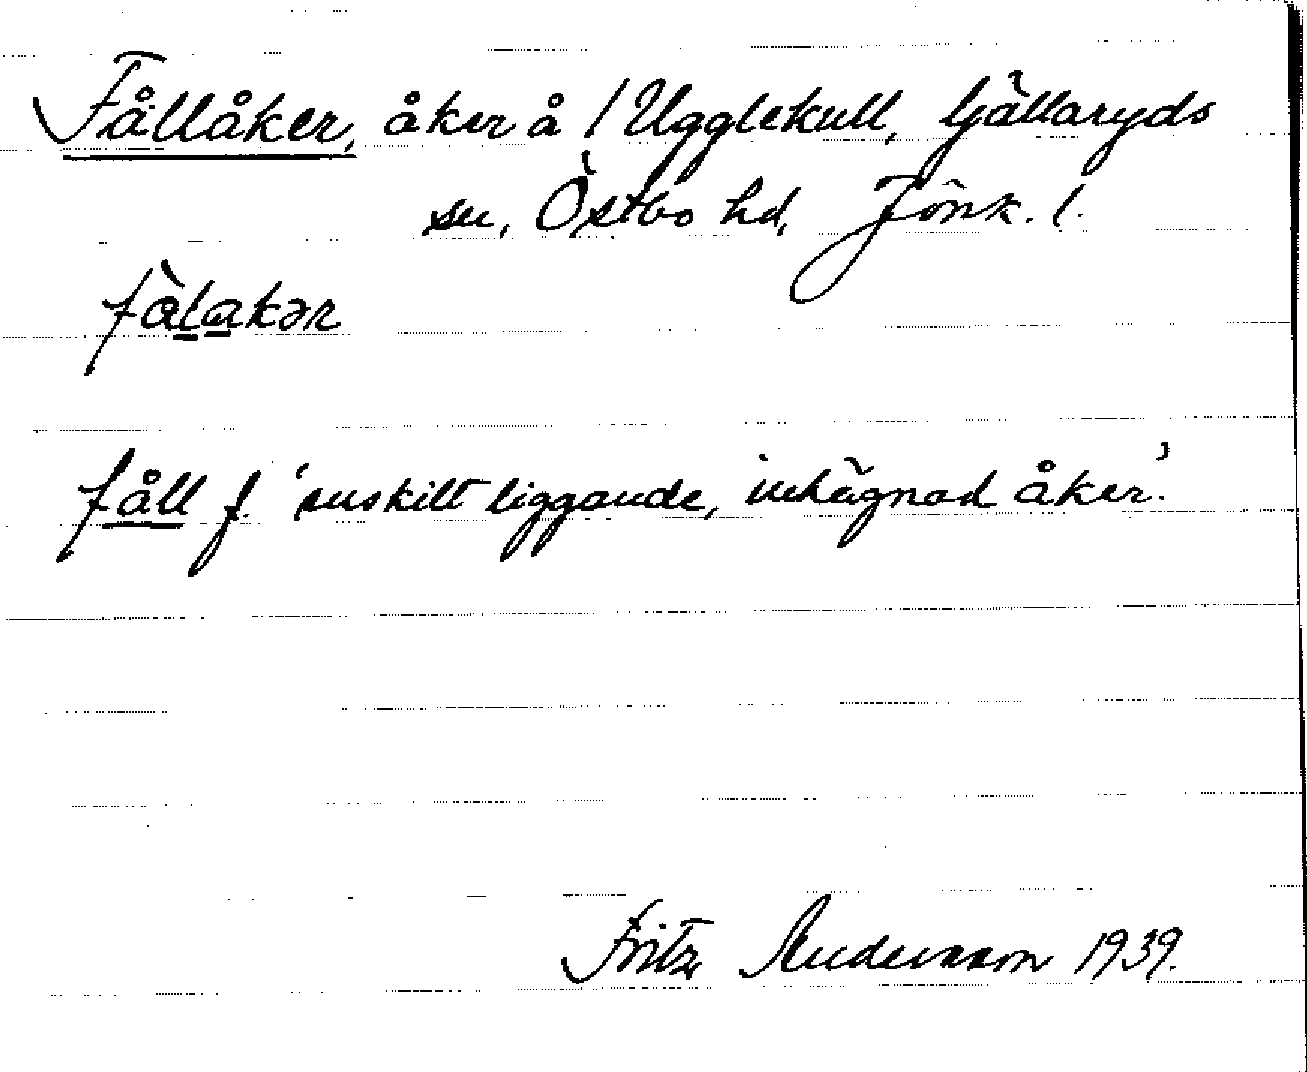 Fållåker, åker å / Ugglekull, Gällaryds
sn, Östbo hd, Jönk. l.
fàlakər
fåll f. 'enskilt liggande, inhägnad åker'.
Fritz Andersson 1939.